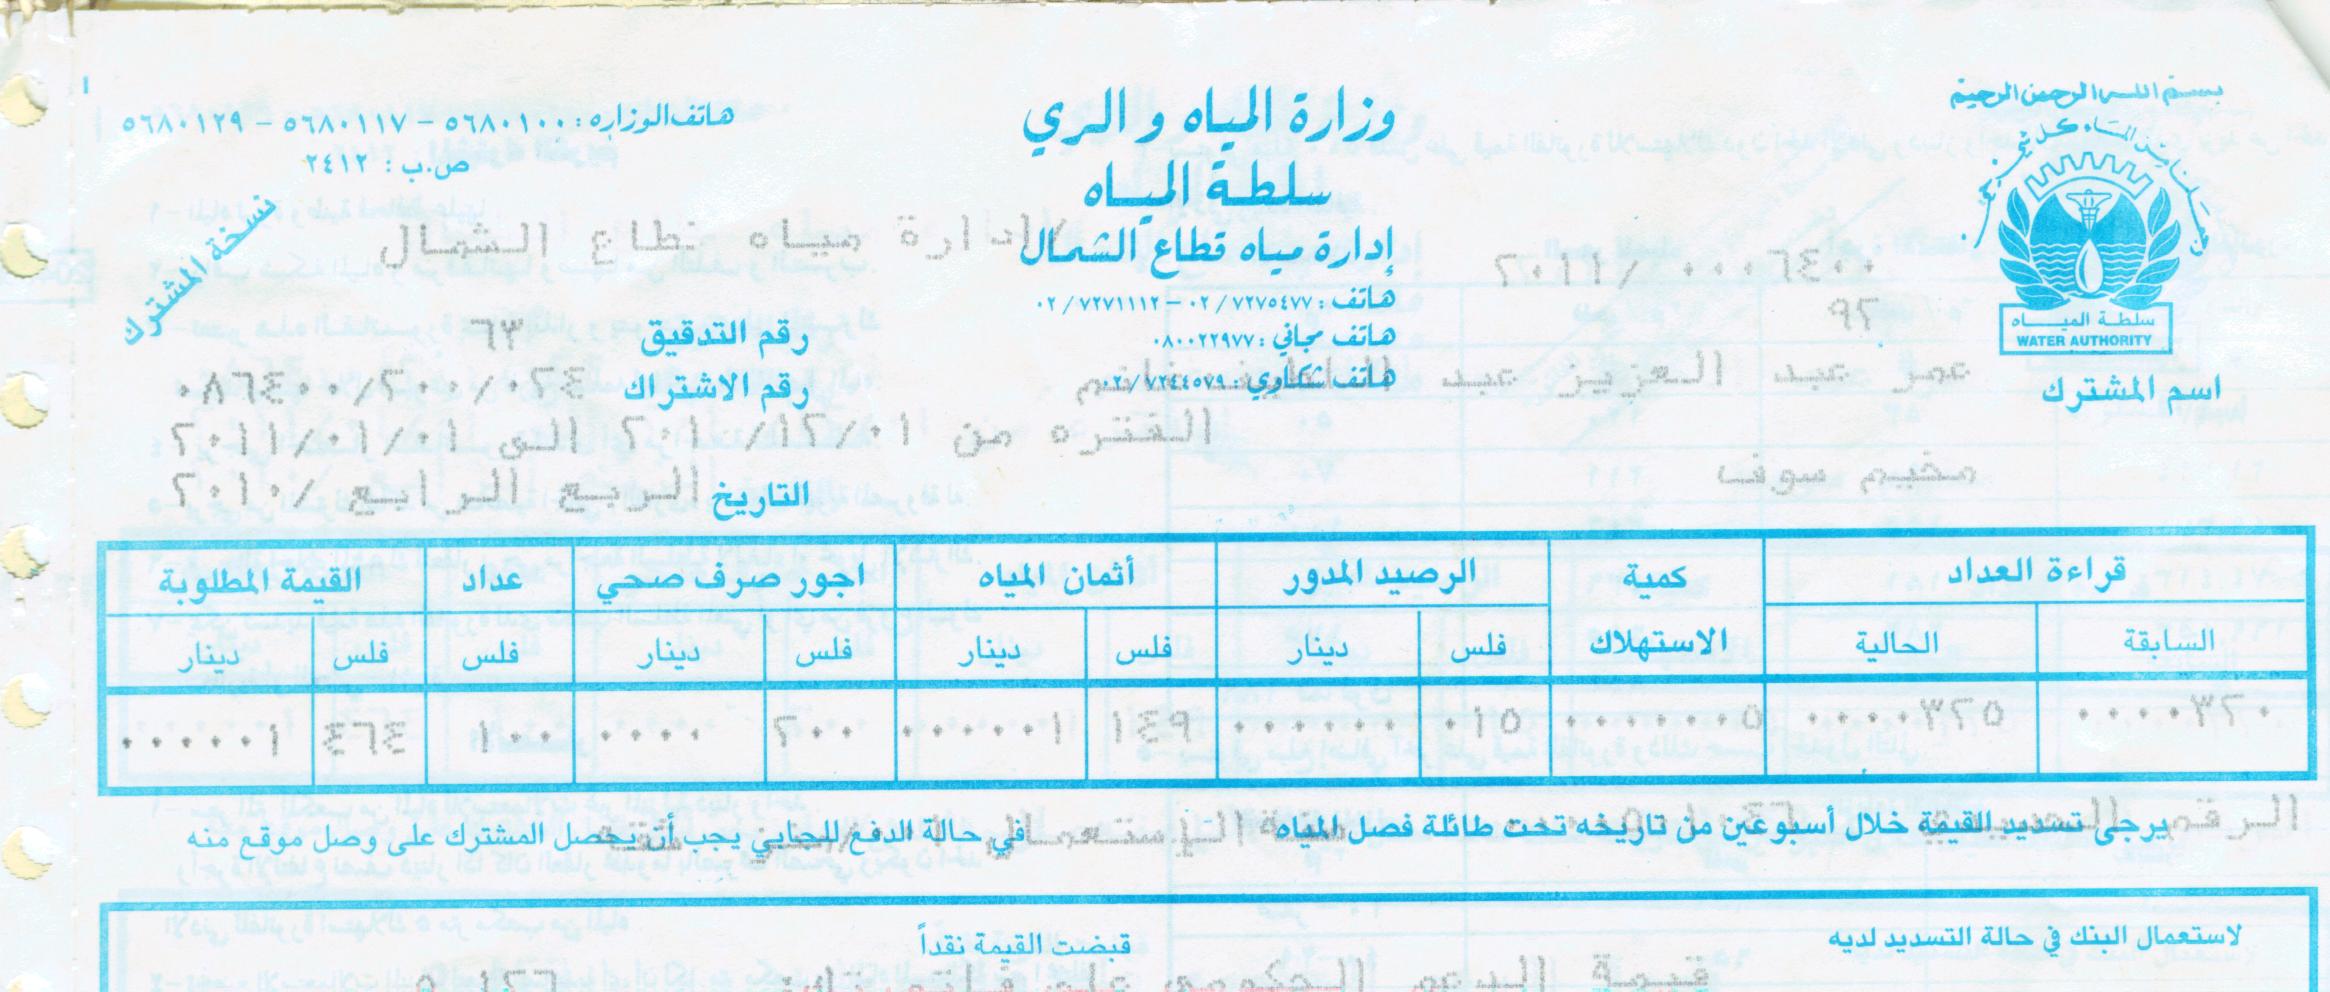 بسم الله الرحمن الرحيم
وجعلنا من الماء كل شيء حي
سلطة المياه
WATER AUTHORITY
وزارة المياه و الري
سلطة المياه
إدارة مياه قطاع الشمال
هاتف : ٠٢/٧٢٧٥٤٧٧ - ٠٢/٧٢٧١١١٢
هاتف مجاني : ٠٨٠٠٢٢٩٧٧
هاتف شكاوي : ٠٢/٧٢٤٤٥٧٩
هاتف الوزاره : ٥٦٨٠١٠٠ - ٥٦٨٠١١٧ - ٥٦٨٠١٢٩
ص.ب : ٢٤١٢
نسخة المشترك
/ادارة مياه قطاع الشمال
٠٠٠٦٤٠٠ /٢٠١١
٩٢
رقم التدقيق ٦٣
اسم المشترك عمر عبد العزيز عبد اللطيف غانم
رقم الاشتراك ٠٨٦٤٠٠/٢٠٠/٠٢٤
الفتره من ٢٠١٠/١٢/٠١ الى ٢٠١١/٠١/٠١
مخيم سوف
التاريخ الربع الرابع /٢٠١٠
قراءة العداد كمية الرصيد المدور أثمان المياه اجور صرف صحي عداد القيمة المطلوبة
السابقة الحالية الاستهلاك فلس دينار فلس دينار فلس دينار فلس فلس دينار
٠٠٠٠٣٢٠ ٠٠٠٠٣٢٥ ٠٠٠٠٠٠٠٥ ٠١٥ ٠٠٠٠٠٠ ١٤٩ ٠٠٠٠٠٠١ ٢٠٠ ٠٠٠٠ ١٠٠ ٤٦٤ ٠٠٠٠٠١
يرجى تسديد القيمة خلال أسبوعين من تاريخه تحت طائلة فصل المياه في حالة الدفع للجابي يجب أن يحصل المشترك على وصل موقع منه
لاستعمال البنك في حالة التسديد لديه
قبضت القيمة نقداً
قيمة الدعم الحكومي على فاتورتك